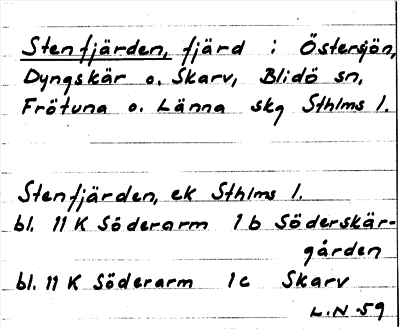 Stenfjärden, fjärd i Östersjön,
Dyngskär o. Skarv, Blidö sn,
Frötuna o. Länna skg Sthlms l.
Stenfjärden, ek Sthlms l.
bl. 11 K Söderarm 1 b Söderskär-
gården
bl. 11 K Söderarm 1c Skarv
L.N -59